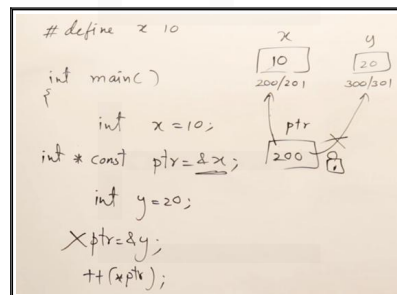 # define x 10
int main()
{
int x = 10;
int * const ptr = &x;
int y = 20;
X ptr = &y;
++(*ptr);
x
10
200/201
y
20
300/301
ptr
200